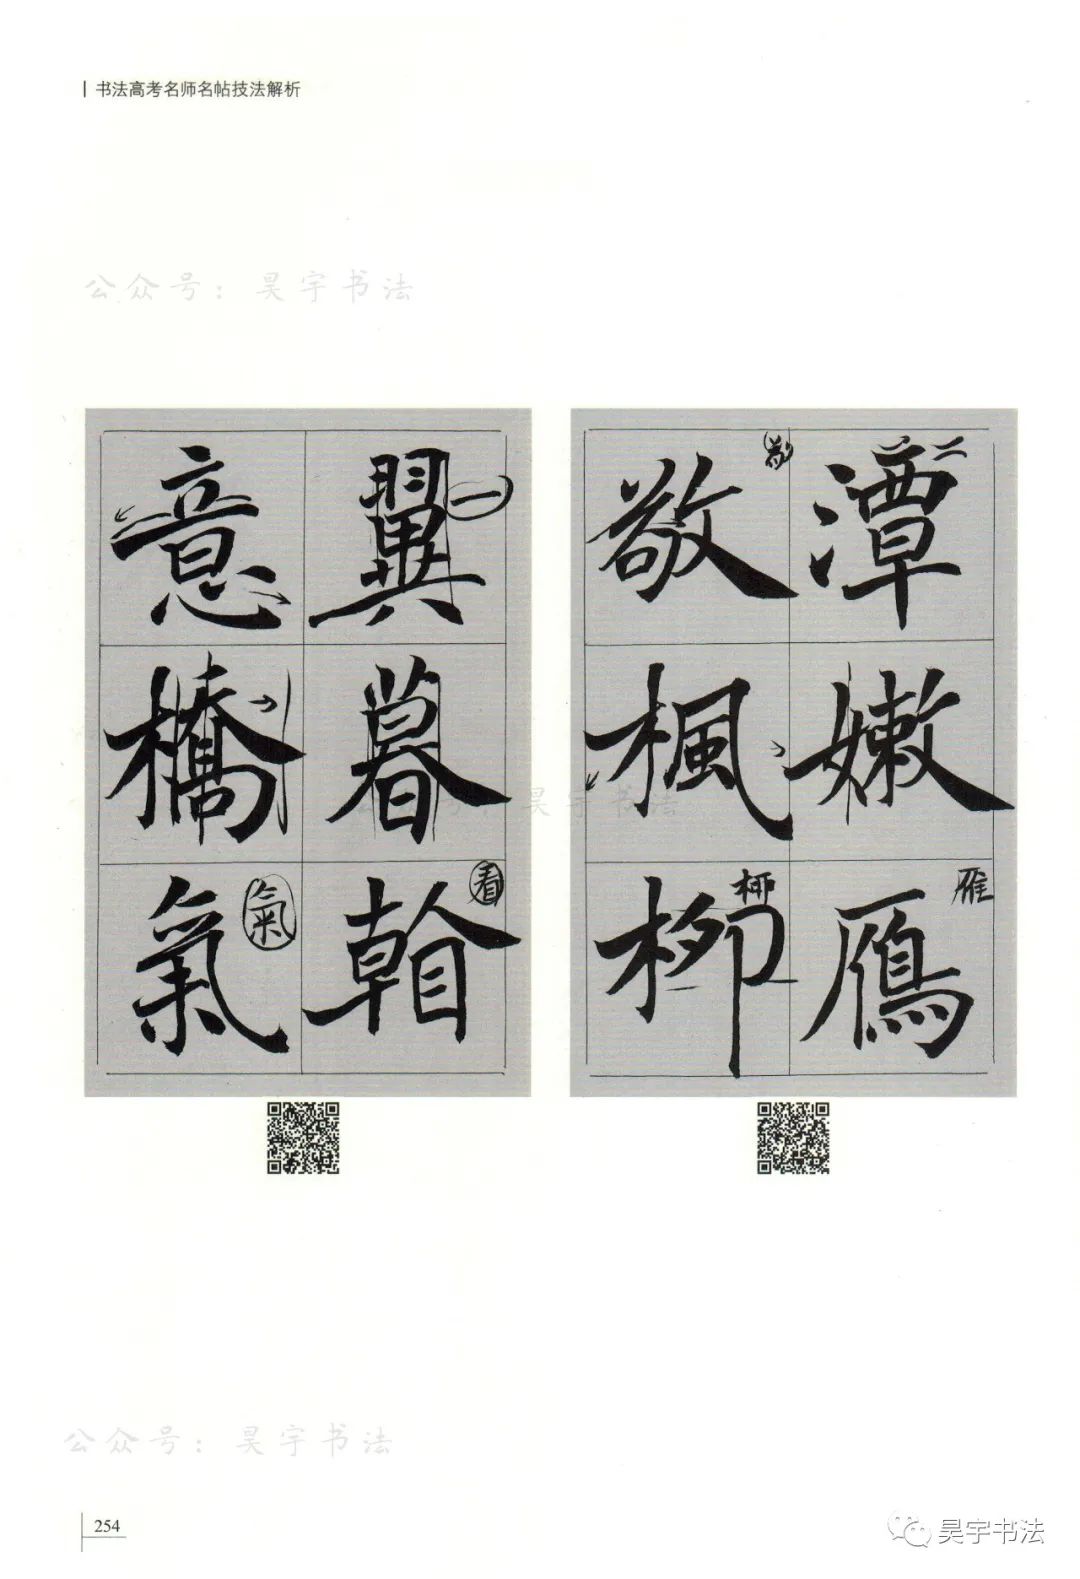 书法高考名师名帖技法解析
公众号：昊宇书法
意 翼
橋 暮
氣 氣
看
敬 敬 潭
楓 嫩
柳 柳 鴈 雁
号：昊宇书法
公众号：昊宇书法
254
昊宇书法